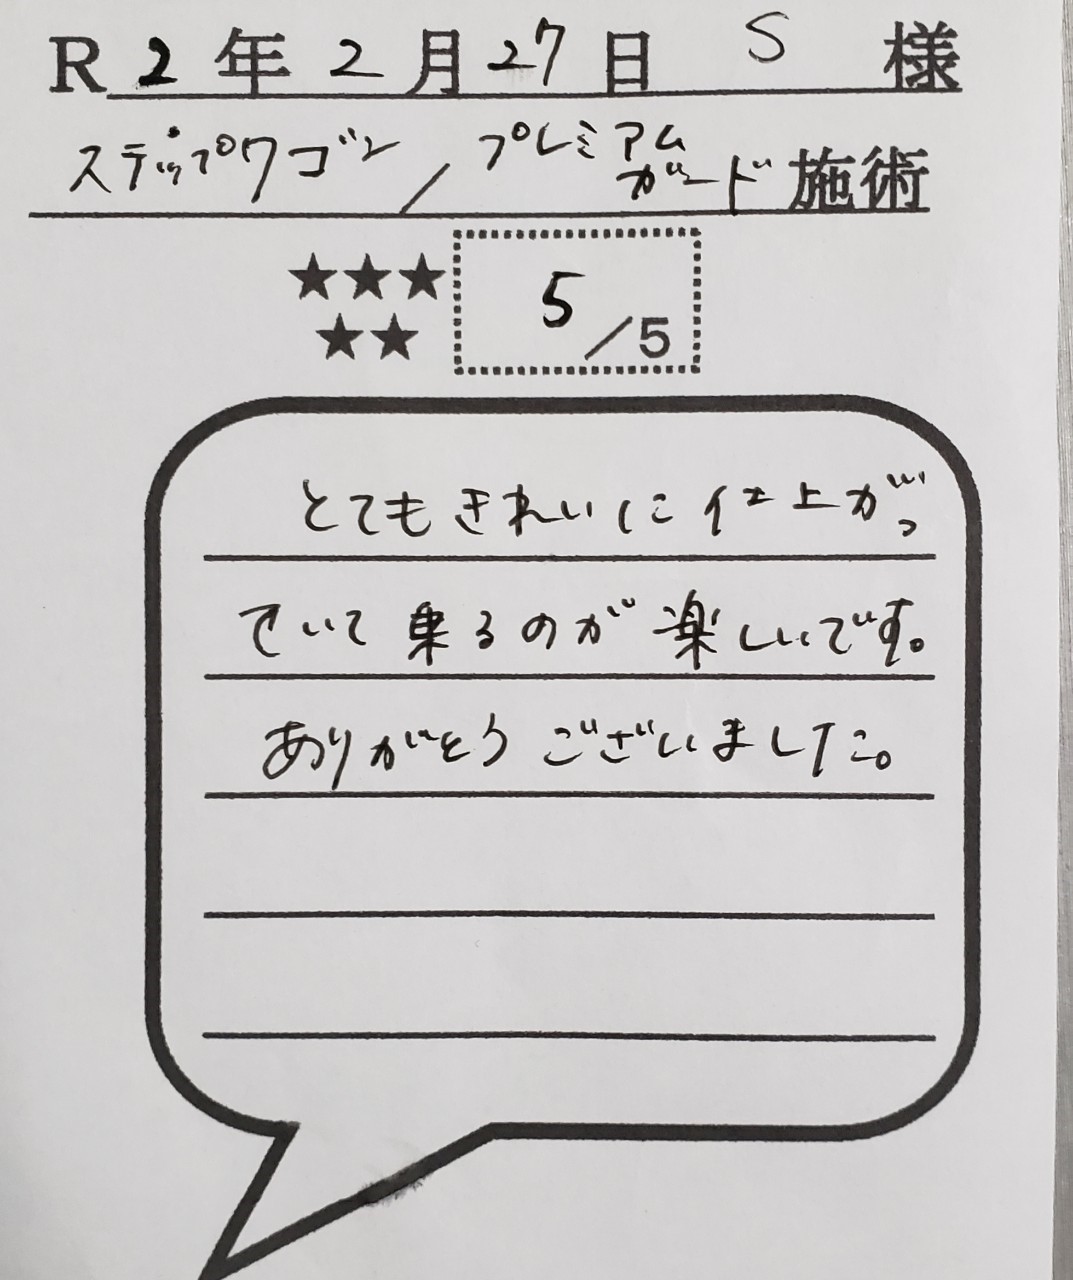 R2年2月27日 S 様
ステップワゴン/プレミアムガード施術
★★★
★★
5/5
とてもきれいに仕上がっ
ていて乗るのが楽しいです。
ありがとうございました。